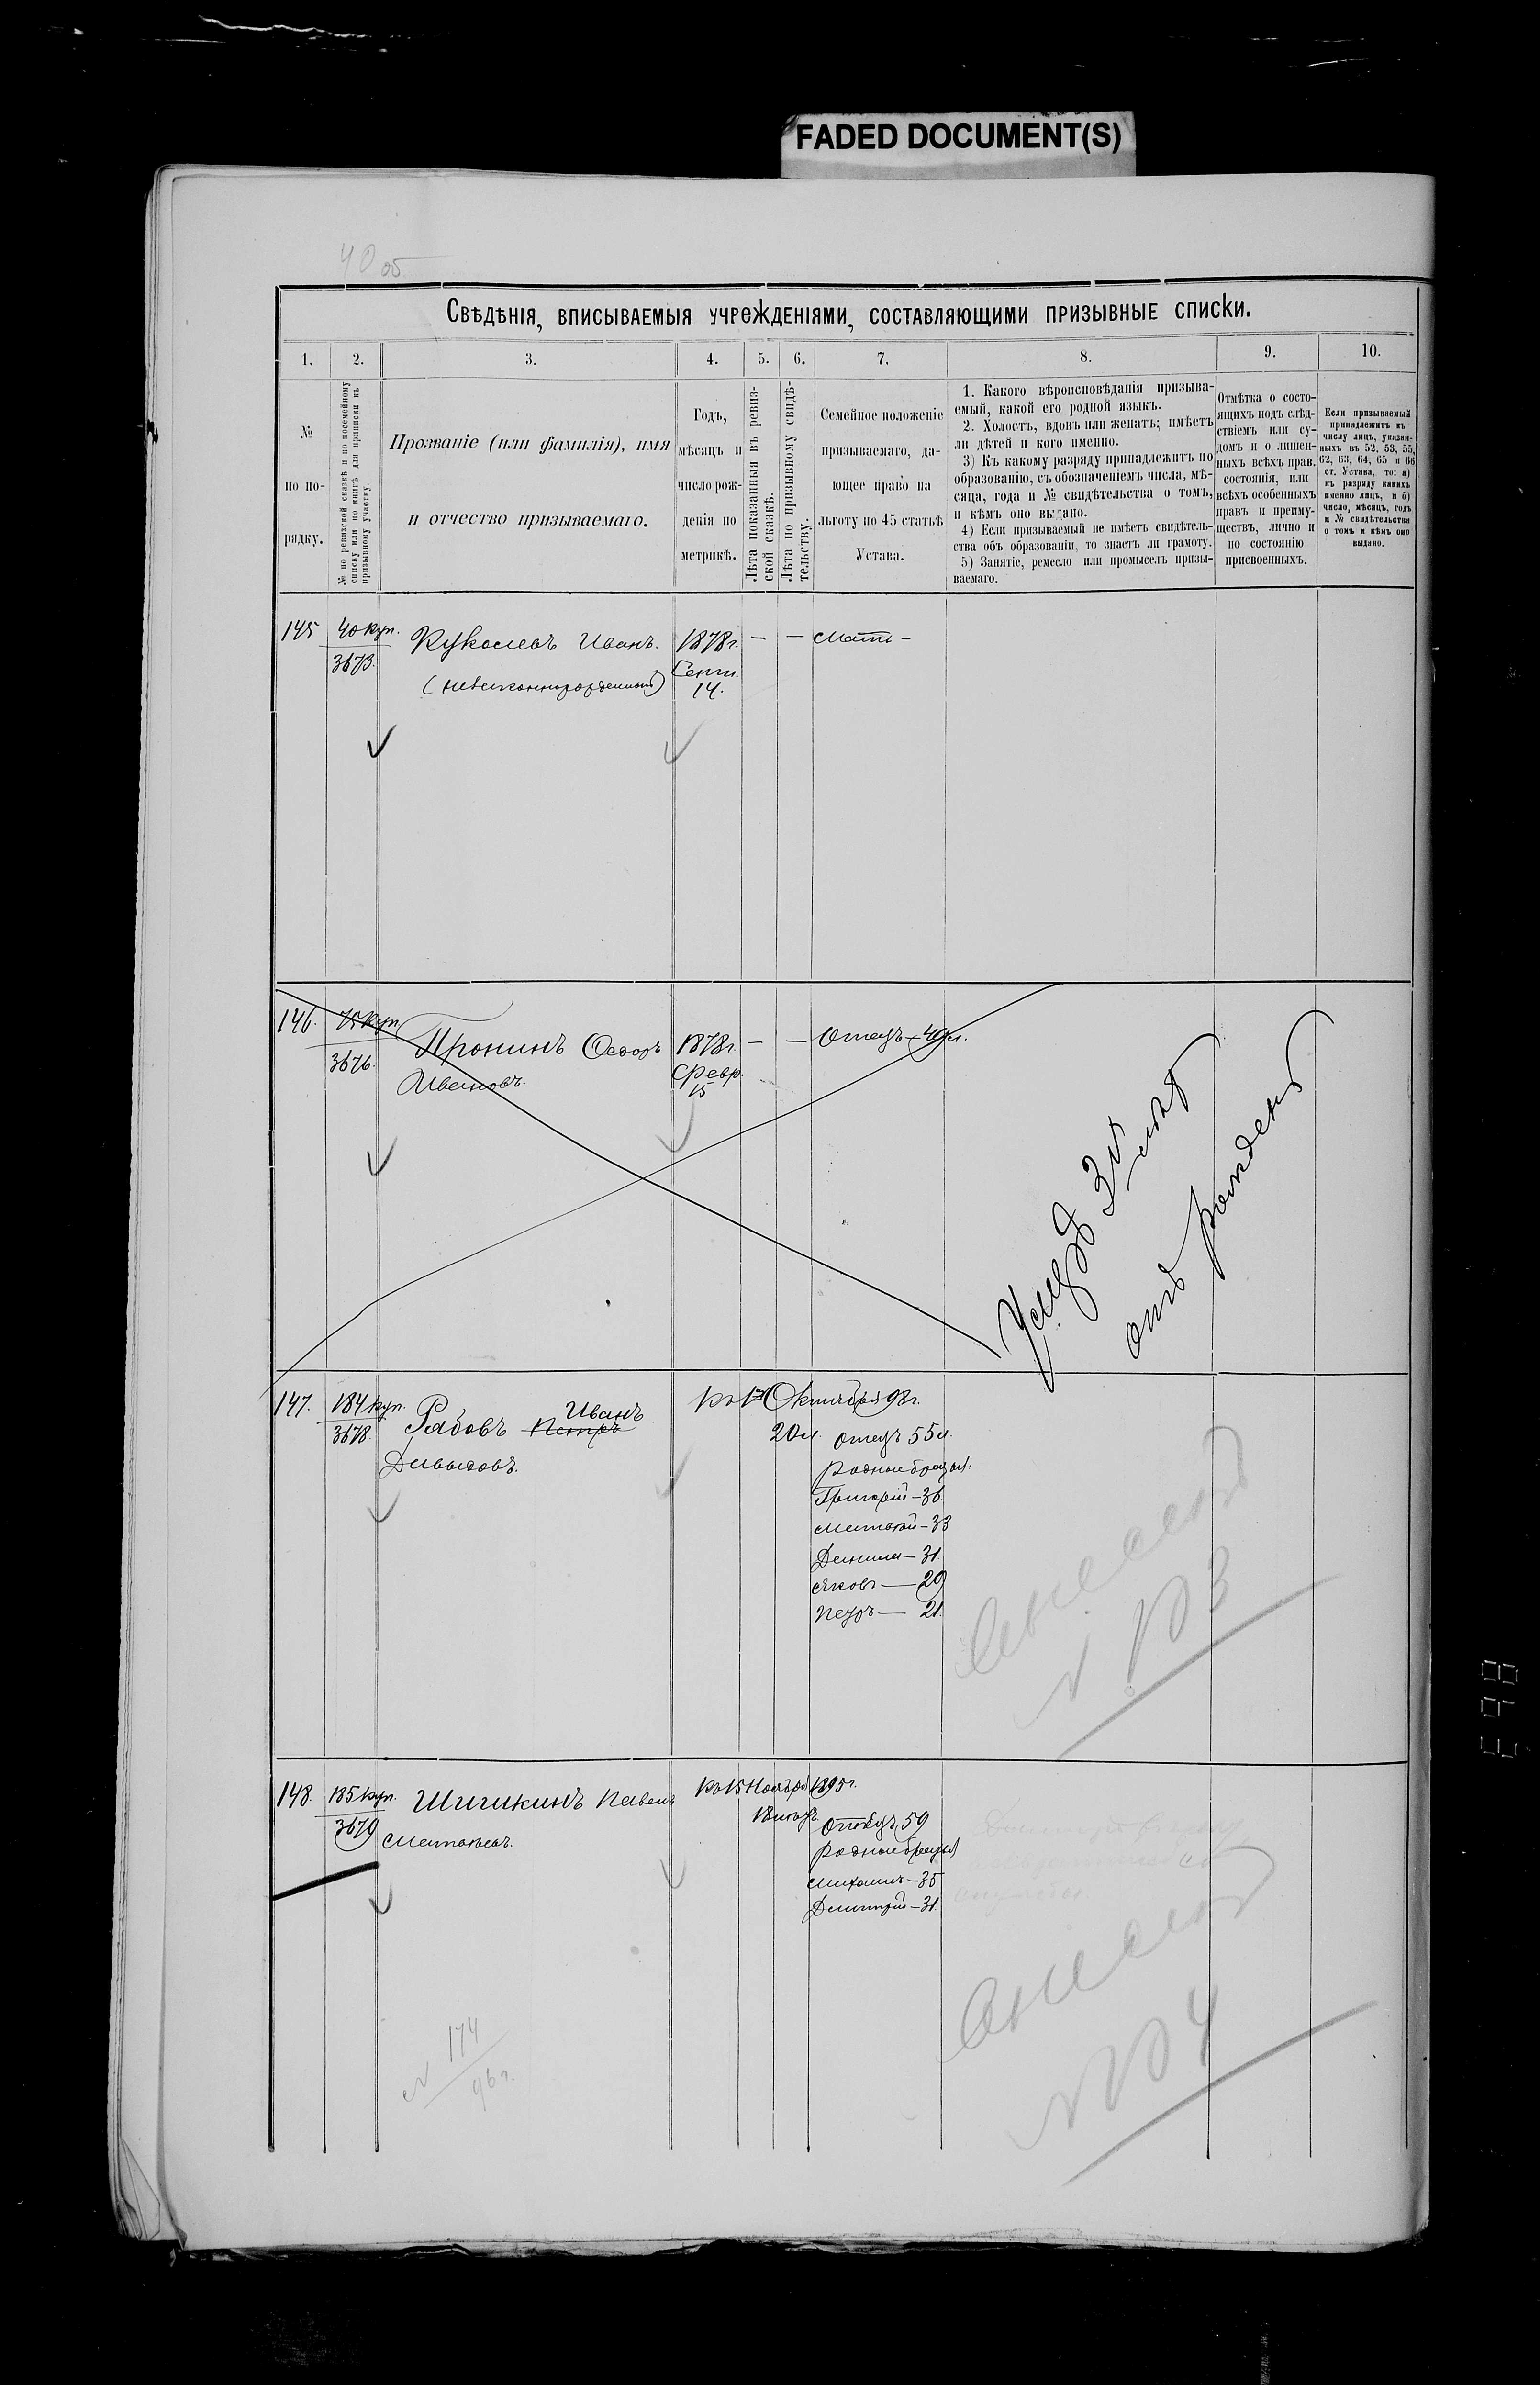 FADED DOCUMENT(S)
40 об
Свѣдѣнія, вписываемыя учрежденіями, составляющими призывные списки.
1. 2. 3. 4. 5. 6. 7. 8. 9. 10.
№
по по-
рядку.
№ по ревизской сказкѣ и по посемейному
списку или по книгѣ для приписки къ
призывному участку.
Прозваніе (или фамилія), имя
и отчество призываемаго.
Годъ,
мѣсяцъ и
число рож-
денія по
метрикѣ.
Лѣта показанныя въ ревиз-
ской сказкѣ.
Лѣта по призывному свидѣ-
тельству.
Семейное положеніе
призываемаго, да-
ющее право на
льготу по 45 статьѣ
Устава.
1. Какого вѣроисповѣданія призыва-
емый, какой его родной языкъ.
2. Холостъ, вдовъ или женатъ; имѣетъ
ли дѣтей и кого именно.
3) Къ какому разряду принадлежитъ по
образованію, съ обозначеніемъ числа, мѣ-
сяца, года и № свидѣтельства о томъ,
и кѣмъ оно выдано.
4) Если призываемый не имѣетъ свидѣтель-
ства объ образованіи, то знаетъ ли грамоту.
5) Занятіе, ремесло или промыселъ призы-
ваемаго.
Отмѣтка о состо-
ящихъ подъ слѣд-
ствіемъ или су-
домъ и о лишен-
ныхъ всѣхъ прав.
состоянія, или
всѣхъ особенныхъ
правъ и преиму-
ществъ, лично и
по состоянію
присвоенныхъ.
Если призываемый
принадлежитъ къ
числу лицъ, указан-
ныхъ въ 52, 53, 55,
62, 63, 64, 65 и 66
ст. Устава, то: а)
къ разряду какихъ
именно лицъ, и б)
число, мѣсяцъ, годъ
и № свидѣтельства
о томъ и кѣмъ оно
выдано.
145 40 куп. Иванъ. 1878г. — — Мать —
3673. (незаконнорожденный) Сент.
14.
146. 75 куп Пронинъ Ѳедоръ 1878г. — — Отецъ — 49л.
3676. Ивановъ. Февр.
15
Умеръ 3х лѣтъ
отъ рожденія
147. 184 куп. Рабовъ Петръ Иванъ къ 1му Октября 98г.
3678. Давыдовъ. 20л. отецъ 55л.
родные братья:
Григорій — 36
Матвѣй — 33
Данила — 31.
Яковъ — 29
Петръ — 21.
№ 3
148. 185 куп. Шишкинъ Павелъ къ 15 Ноября 1895г.
3679 Матвѣевъ. отецъ 59
родные братья
Михаилъ — 35
Дмитрій — 31.
№ 4
№ 174
96г.